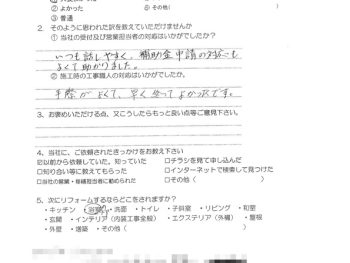 ② よかった　⑤ その他（
③ 普通
2. そのように思われた訳を教えていただけませんか
① 当社の受付及び営業担当者の対応はいかがでしたか？
いつも話しやすく、補助金申請の対応も
よくて助かりました。
② 施工時の工事職人の対応はいかがでしたか。
手際がよくて、早く終ってよかったです。
3. お褒めいただける点、又こうしたらもっと良い点等ご意見下さい。
4. 当社に、ご依頼されたきっかけをお教え下さい
☑以前から依頼していた。知っていた　□チラシを見て申し込んだ
□知り合い等に教えてもらった　□インターネットで検索して見つけた
□当社の営業・毎経担当者に勧められた　□その他（　）
5. 次にリフォームするならどこをされますか？
・キッチン　・浴室　・洗面　・トイレ　・子供室　・リビング　・和室
・玄関　・インテリア（内装工事全般）　・エクステリア（外構）　・屋根
・外壁　・塗装　・その他（